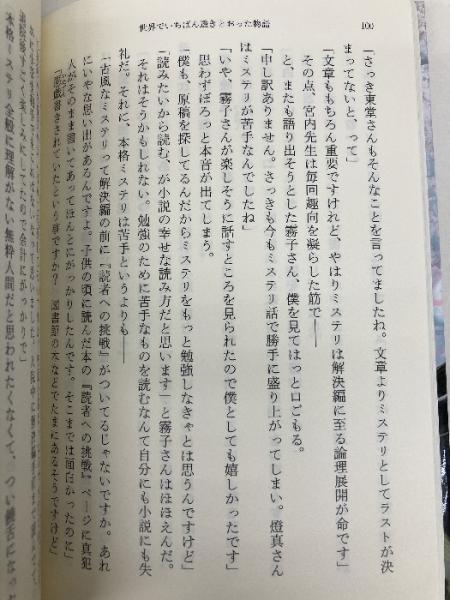 100
世界でいちばん透きとおった物語
「さっき東堂さんもそんなことを言ってましたね。文章よりミステリとしてラストが決
まってないと、って」
「文章ももちろん重要ですけれど、やはりミステリは解決編に至る論理展開が命です」
その点、宮内先生は毎回趣向を凝らした筋で――
と、またも語り出そうとした霧子さん、僕を見てはっと口ごもる。
「申し訳ありません。さっきも今もミステリ話で勝手に盛り上がってしまい。燈真さん
はミステリが苦手なんでしたね」
「いや、霧子さんが楽しそうに話すところを見られたので僕としても嬉しかったです」
思わずぽろっと本音が出てしまう。
「僕も、原稿を探してるんだからミステリをもっと勉強しなきゃとは思うんですけど」
「読みたいから読む、が小説の幸せな読み方だと思います」と霧子さんはほほえんだ。
「それはそうかもしれない。勉強のために苦手なものを読むなんて自分にも小説にも失
礼だ。それに、本格ミステリは苦手というよりも――
「古風なミステリって解決編の前に『読者への挑戦』がついてるじゃないですか。あれ
にいやな思い出があるんですよ。子供の頃に読んだ本の『読者への挑戦』ページに真犯
人がそのまま書いてあってほんとにがっかりしたんです。そこまでは面白かったのに」
「落書きされていたという事ですか？　図書館の本などでたまにあるそうですけど」
本格ミステリ全般に理解がない無粋人間だと思われたくなくて、つい